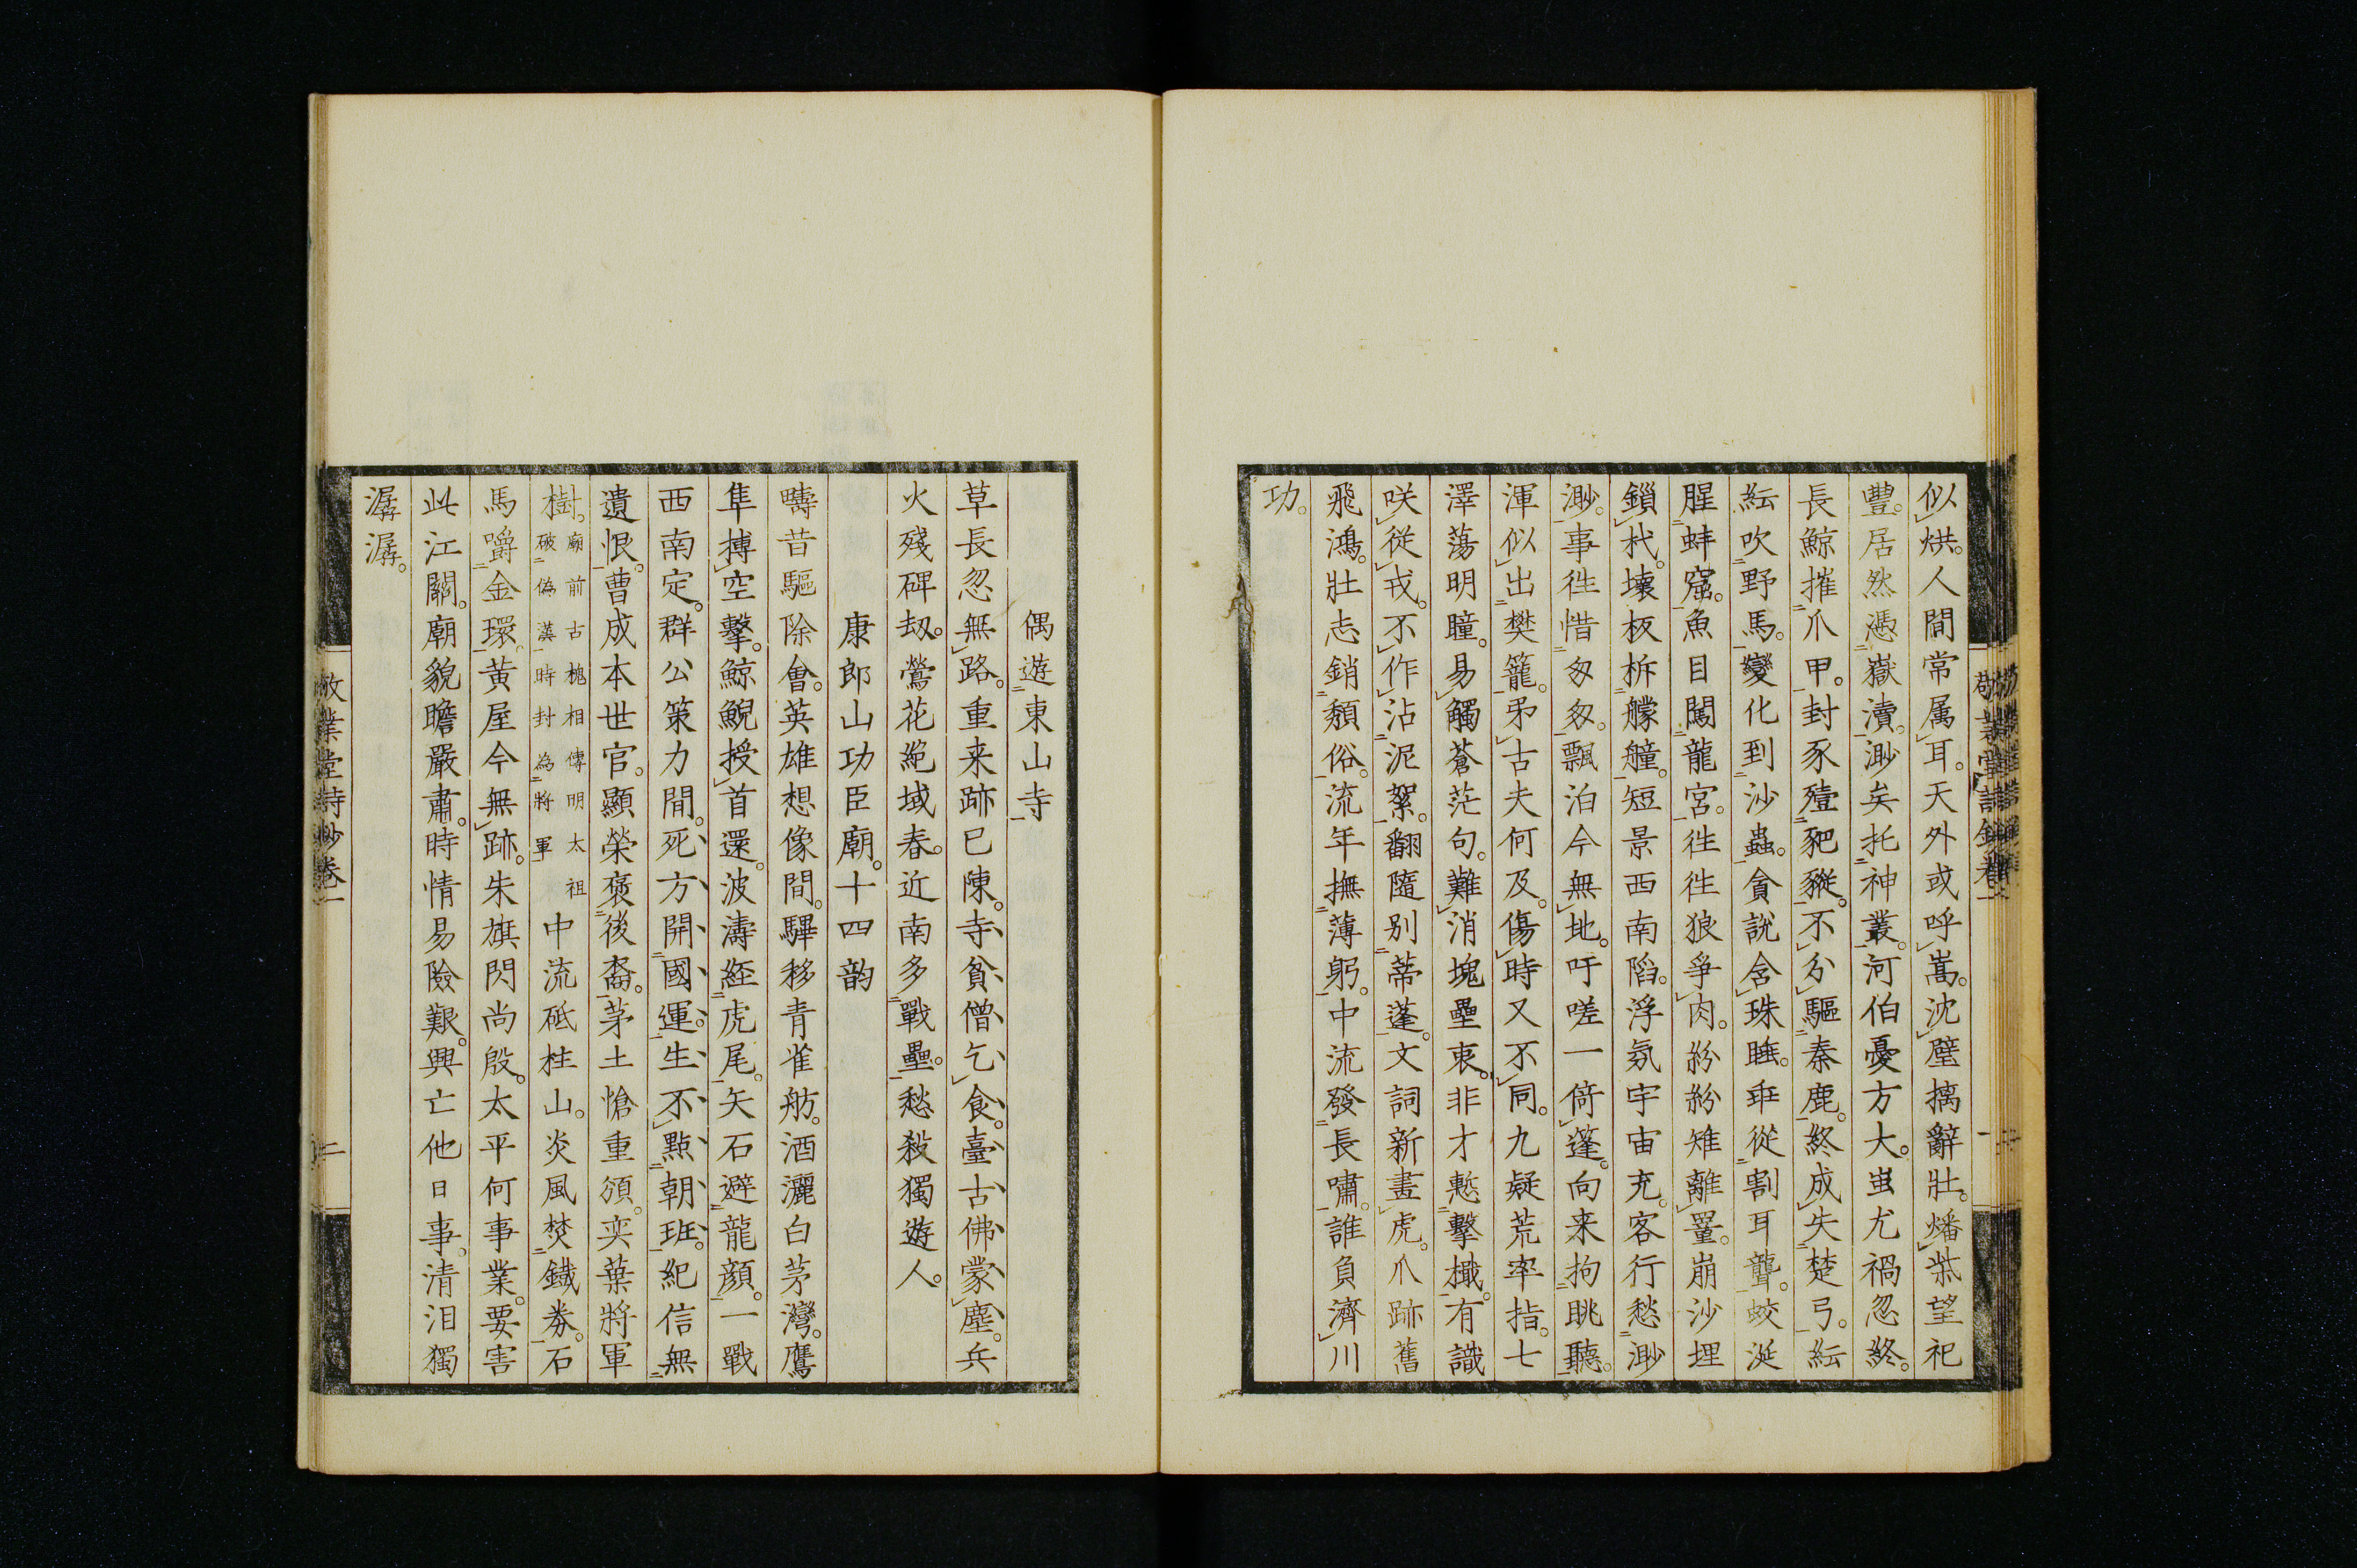 似烘。人間常属耳。天外或呼嵩。沈璧摛辭壯。燔柴望祀
豐。居然憑嶽瀆。渺矣托神叢。河伯憂方大。蚩尤禍忽終。
長鯨摧爪甲。封豕殪豝豵。不分驅秦鹿。終成失楚弓。紜
紜吹野馬。變化到沙蟲。貪說含珠睡。乖從割耳聾。蛟涎
腥蚌窟。魚目闖龍宮。往往狼爭肉。紛紛雉離罿。崩沙埋
鎖杙。壞板柝艨艟。短景西南陷。浮氛宇宙充。客行愁渺
渺。事往惜匆匆。飄泊今無地。吁嗟一倚篷。向来拘眺聽。
渾似出樊籠。弔古夫何及。傷時又不同。九疑荒率指。七
澤蕩明瞳。易觸蒼茫句。難消塊壘衷。非才慙擊檝。有識
咲從戎。不作沾泥絮。翻隨别蒂蓬。文詞新畫虎。爪跡舊
飛鴻。壯志銷頽俗。流年撫薄躬。中流發長嘯。誰負濟川
功。
偶遊東山寺
草長忽無路。重来跡已陳。寺貧僧乞食。臺古佛蒙塵。兵
火殘碑刼。鶯花絶域春。近南多戰壘。愁殺獨遊人。
康郎山功臣廟。十四韵
疇昔驅除會。英雄想像間。驆移青雀舫。酒灑白茅灣。鷹
隼搏空擊。鯨鯢授首還。波濤経虎尾。矢石避龍顏。一戰
西南定。群公策力閒。死方開國運。生不點朝班。紀信無
遺恨。曹成本世官。顯榮褒後裔。茅土愴重頒。奕葉將軍
樹。廟前古槐相傳明太祖破偽漢時封為將軍中流砥柱山。炎風焚鐵券。石
馬嚼金環。黄屋今無跡。朱旗閃尚殷。太平何事業。要害
此江關。廟貌瞻嚴肅。時情易險艱。興亡他日事。清泪獨
潺潺。
敬業堂詩鈔卷一
二